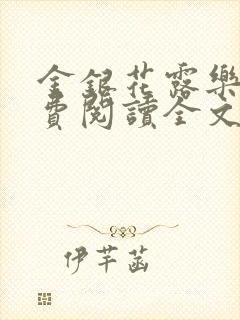 金銀花露樂
費閱讀全文
伊芊菡